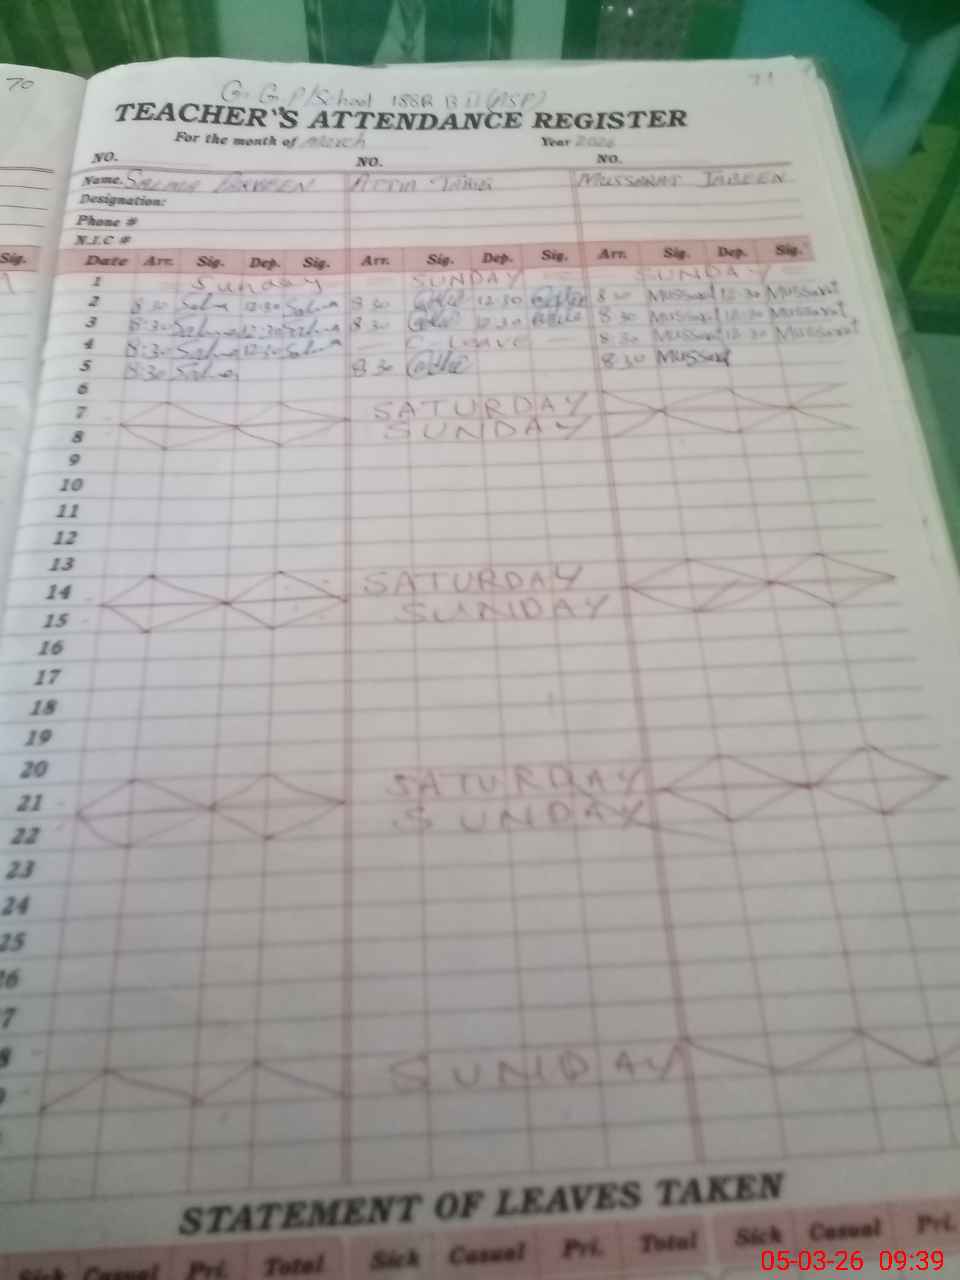 70
71
G. G. P/School 188R B II (PSP)
TEACHER'S ATTENDANCE REGISTER
For the month of March Year 2026
NO. NO. NO.
Name. SALMA PARVEEN ATTIA TARIQ MUSSARAT JABEEN
Designation:
Phone #
N.I.C #
Sig. Date Arr. Sig. Dep. Sig. Arr. Sig. Dep. Sig. Arr. Sig. Dep. Sig.
1 Sunday SUNDAY SUNDAY
2 8:30 Salma 12:30 Salma 8 30 12:30 8 30 Mussarat 12:30 Mussarat
3 8:30 Salma 12:30 Salma 8 30 12:30 8 30 Mussarat 12:30 Mussarat
4 8:30 Salma 12:30 Salma C. LEAVE 8 30 Mussarat 12:30 Mussarat
5 8:30 Salma 8 30 8 30 Mussarat
6
7 SATURDAY
8 SUNDAY
9
10
11
12
13
14 SATURDAY
15 SUNDAY
16
17
18
19
20
21 SATURDAY
22 SUNDAY
23
24
25
26
7
8
SUNDAY
STATEMENT OF LEAVES TAKEN
Sick Casual Pri. Total Sick Casual Pri. Total Sick Casual Pri.
05-03-26 09:39